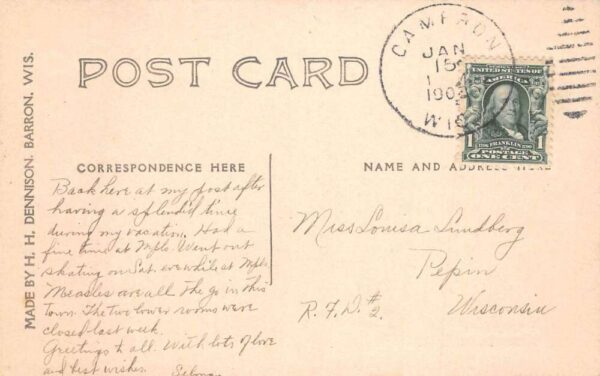 POST CARD
CAMERON
JAN
15
190
WIS
UNITED STATES OF AMERICA
1 FRANKLIN 1
POSTAGE
ONE CENT
MADE BY H. H. DENNISON. BARRON, WIS.
CORRESPONDENCE HERE
Back here at my post after
having a splendid time
during my vacation. Had a
fine time at Mpls. Went out
skating on Sat. eve whilst at Mpls.
Measles are all the go in this
town. The two lower rooms were
closed last week.
Greetings to all. With lots of love
and best wishes. Selma
NAME AND ADDRESS HERE
Miss Louisa Lundberg
Pepin
R. F. D. #2.
Wisconsin